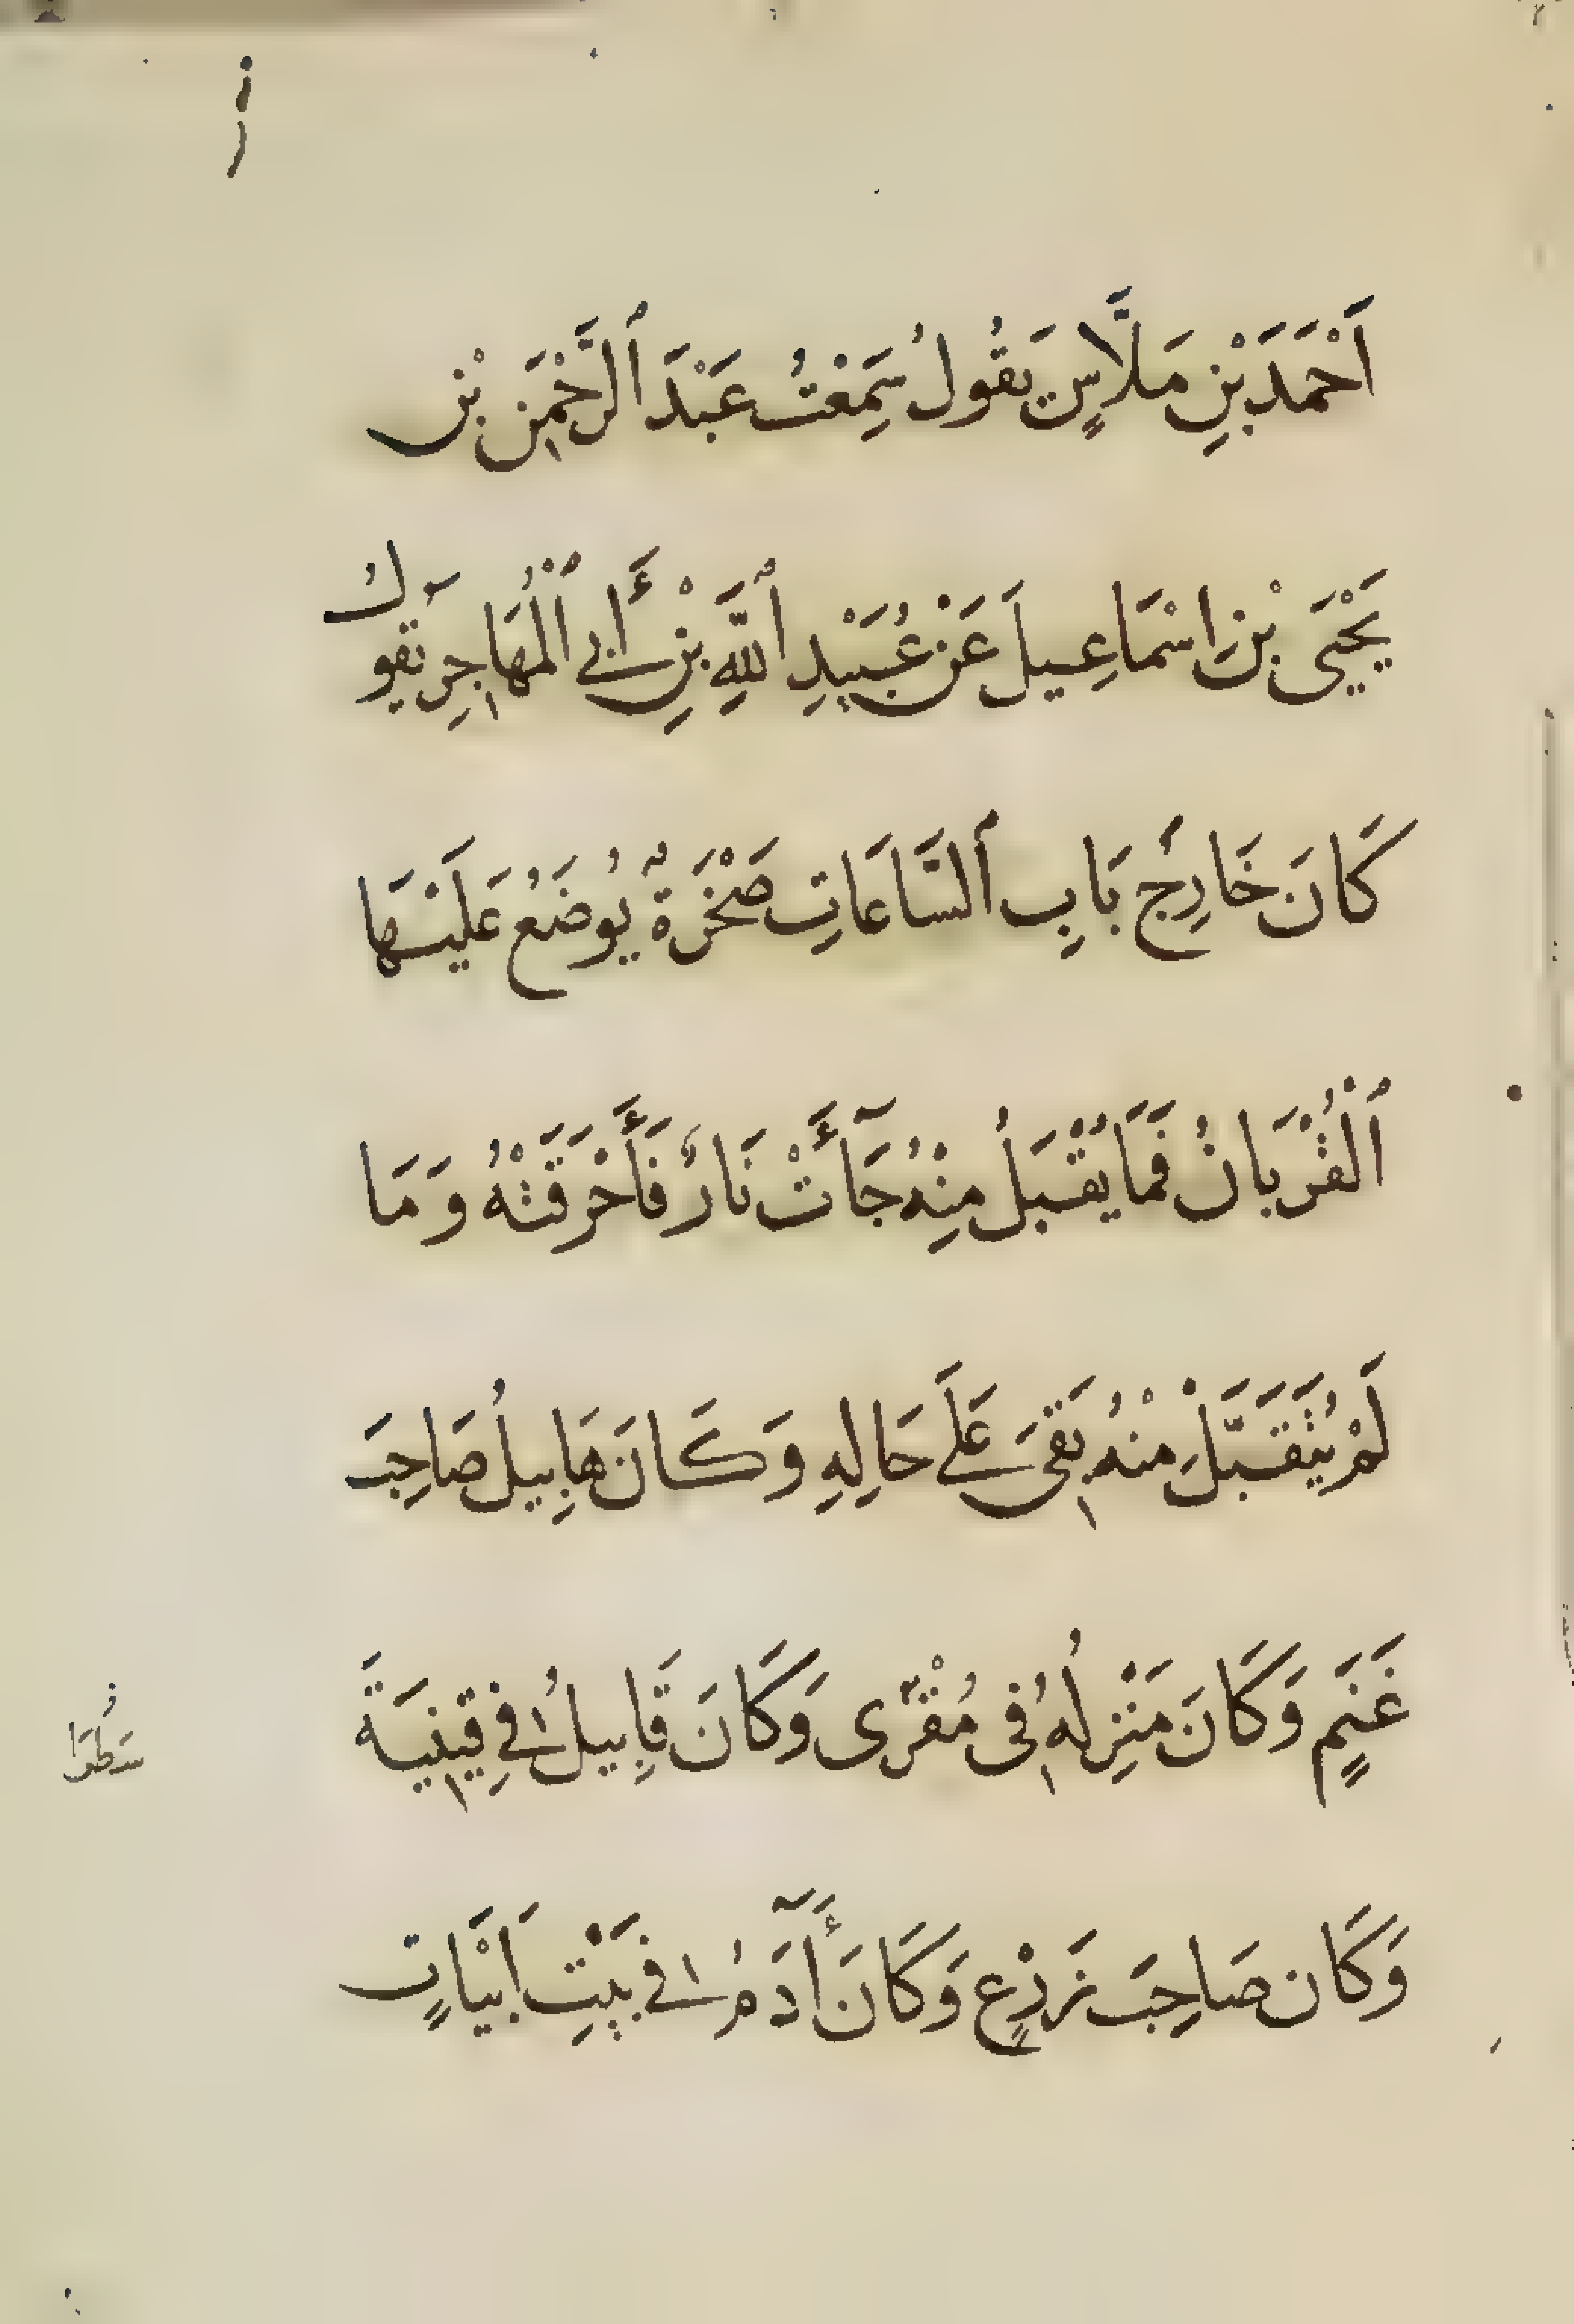 اَحْمَدَ بْنِ مَلَّاسٍ يَقُولُ سَمِعْتُ عَبْدَ ٱلرَّحْمٰنِ بْنِ
يَحْيَى بْنِ اسْمَاعِيلَ عَنْ عُبَيْدِ ٱللَّهِ بْنِ أَبِي ٱلْمُهَاجِرِ يَقُولُ
كَانَ خَارِجَ بَابِ ٱلسَّاعَاتِ صَخْرَةٌ يُوضَعُ عَلَيْهَا
ٱلْقُرْبَانُ فَمَا يُقْبَلُ مِنْهُ جَآءَتْ نَارٌ فَأَحْرَقَتْهُ وَمَا
لَمْ يُتَقَبَّلْ مِنْهُ بَقِيَ عَلَى حَالِهِ وَكَانَ هَابِيلُ صَاحِبَ
غَنَمٍ وَكَانَ مَنْزِلُهُ فِى مُقْرَى وَكَانَ قَابِيلُ فِي قَيْنِيَةَ
وَكَانَ صَاحِبَ زَرْعٍ وَكَانَ أَآدَمُ فِي بَيْتِ اَبْيَاتٍ